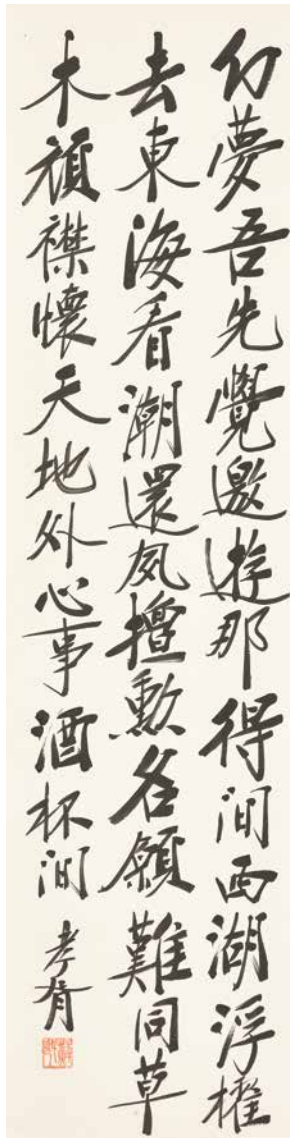 幻夢吾先覺邀遊那得閒西湖浮櫂
去東海看潮還夙擅勳名願難同草
木頑襟懷天地外心事酒杯間
孝胥